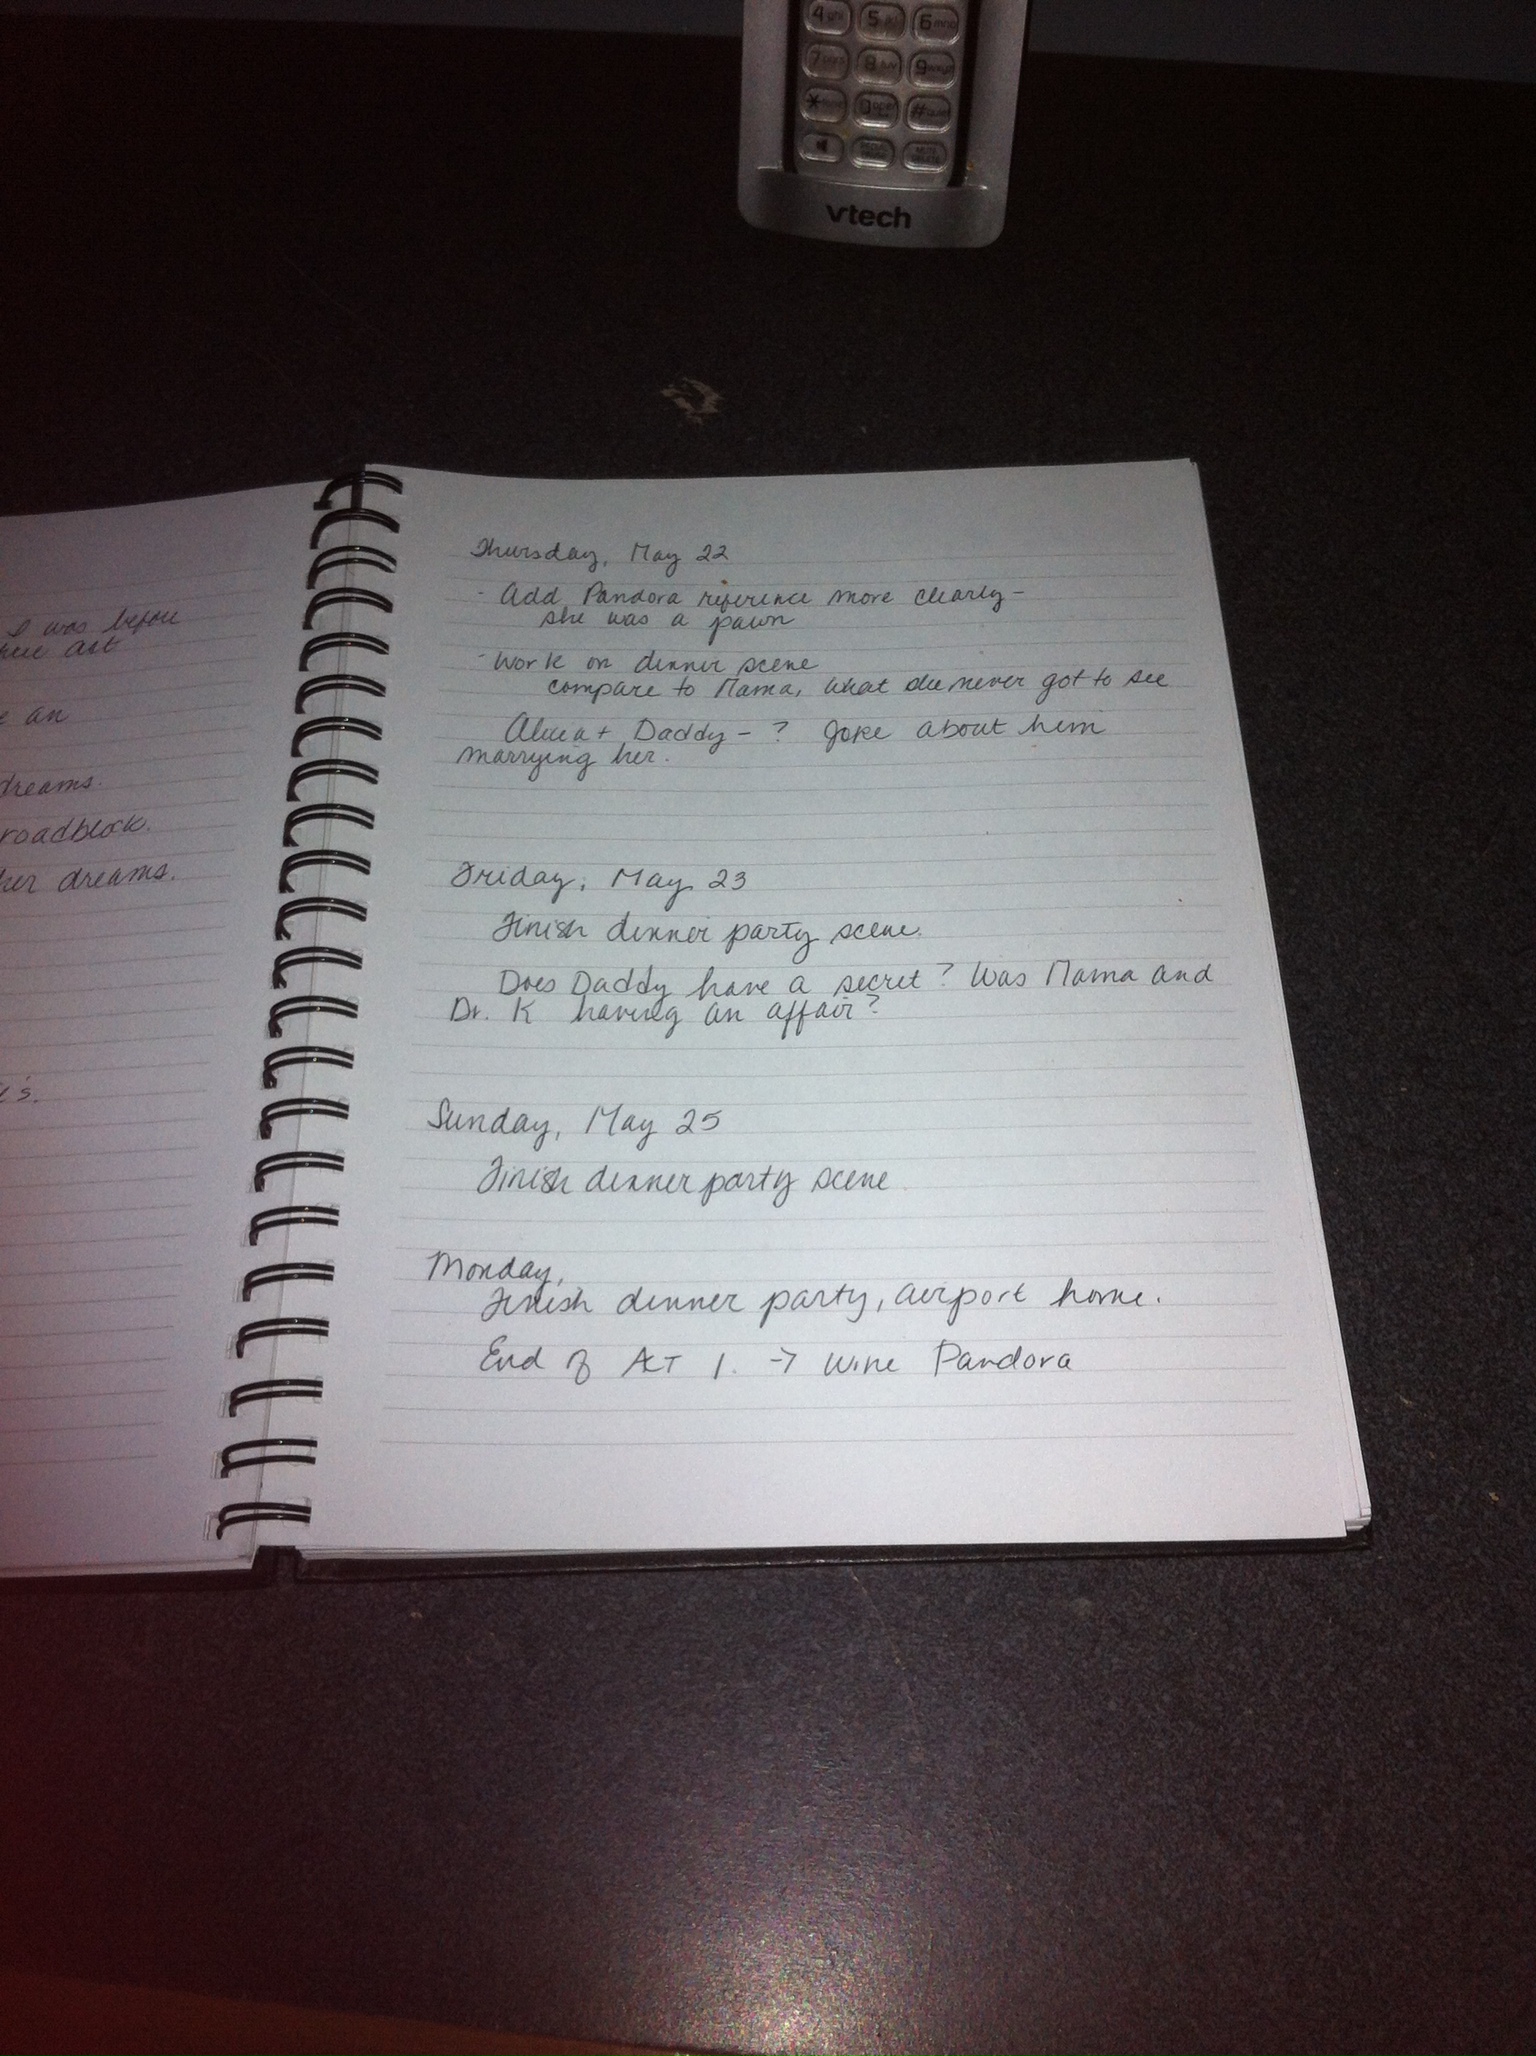 4 ghi 5 jkl 6 mno
7 pqrs 8 tuv 9 wxyz
* 0 oper #
vtech
I was before
act
an
dreams.
roadblock.
her dreams.
Thursday, May 22
- Add Pandora reference more clearly -
she was a pawn
- Work on dinner scene
compare to Mama, what she never got to see
Alicia + Daddy - ? Joke about him
marrying her.
Friday, May 23
Finish dinner party scene.
Does Daddy have a secret? Was Mama and
Dr. K having an affair?
Sunday, May 25
Finish dinner party scene
Monday,
Finish dinner party, airport home.
End of Act 1. → Wine Pandora